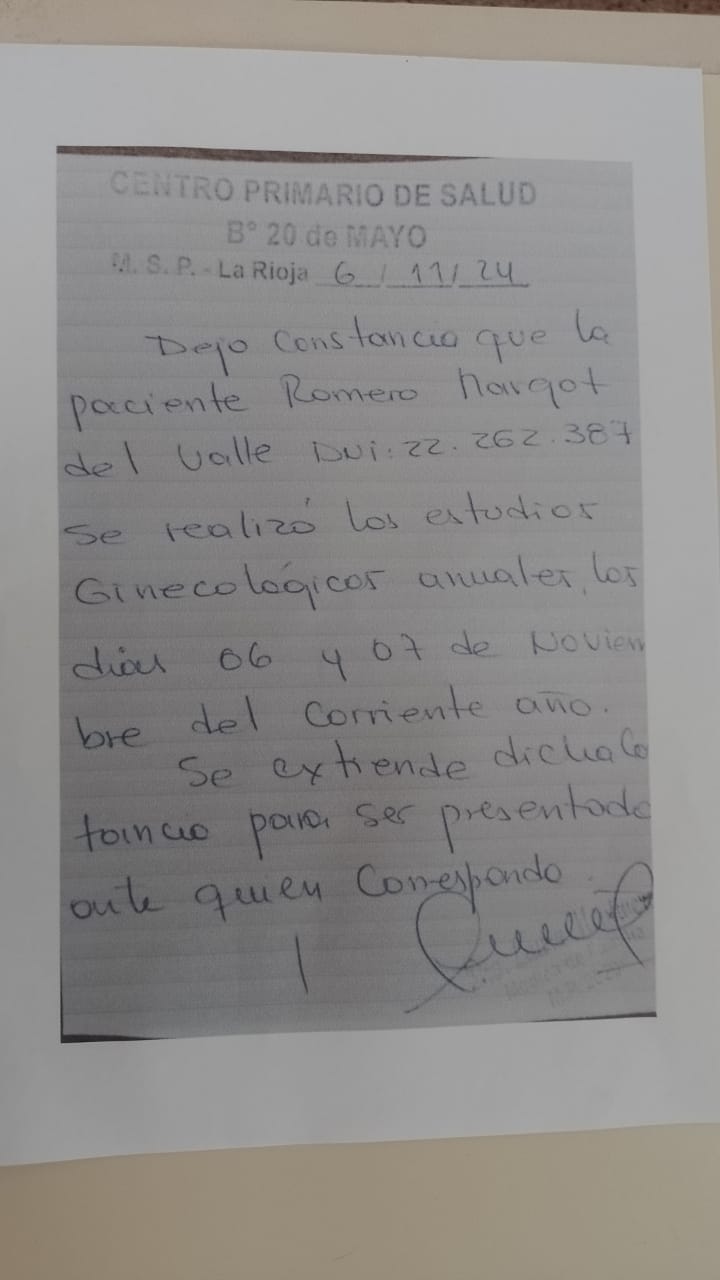 CENTRO PRIMARIO DE SALUD
B° 20 de MAYO
M. S. P. - La Rioja 6 / 11 / 24
Dejo Constancia que la
paciente Romero Margot
del Valle DNI: 22.262.387
se realizó los estudios
Ginecológicos anuales, los
días 06 y 07 de Noviem
bre del corriente año.
Se extiende dicha Co
tancia para ser presentado
ante quien Corresponda.